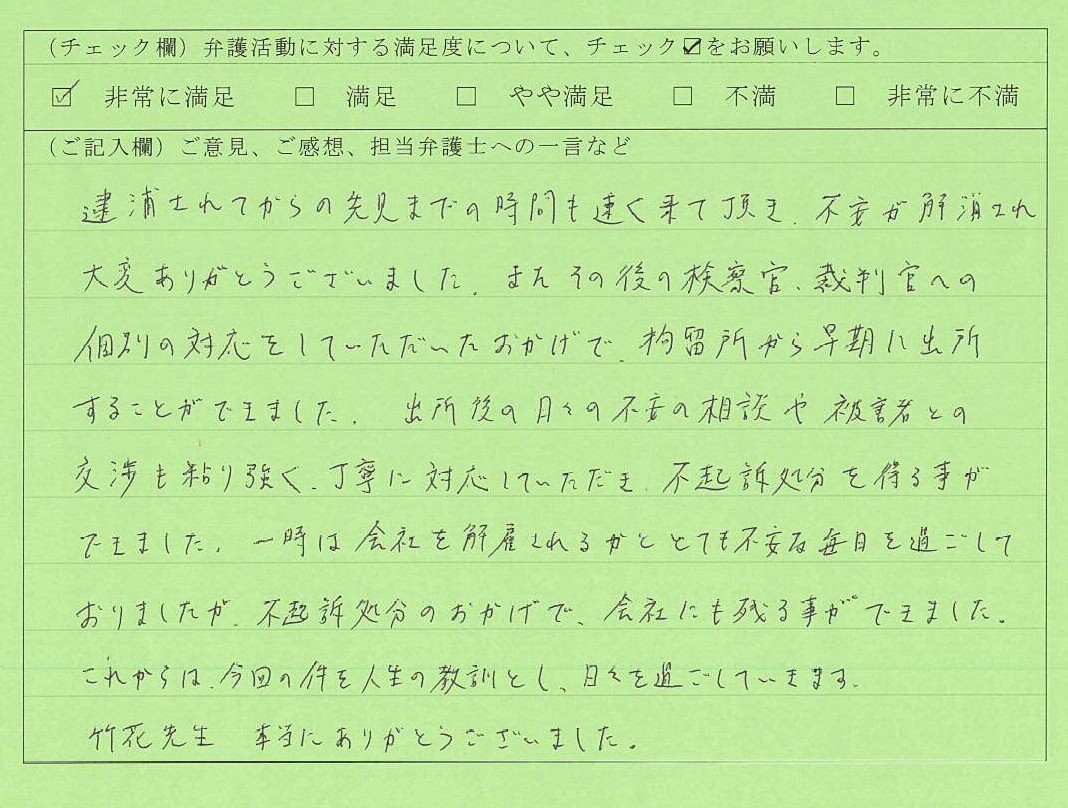 （チェック欄）弁護活動に対する満足度について、チェック☑をお願いします。
☑ 非常に満足 □ 満足 □ やや満足 □ 不満 □ 非常に不満
（ご記入欄）ご意見、ご感想、担当弁護士への一言など
逮浦されてからの発見までの時間も速く来て頂き、不安が解消され
大変ありがとうございました。またその後の検察官、裁判官への
個別の対応をしていただいたおかげで、拘留所から早期に出所
することができました。 出所後の日々の不安の相談や被害者との
交渉も粘り強く、丁寧に対応していただき、不起訴処分を得る事が
できました。一時は会社を解雇されるかととても不安な毎日を過ごして
おりましたが、不起訴処分のおかげで、会社にも残る事ができました。
これからは、今回の件を人生の教訓とし、日々を過ごしていきます。
竹花先生 本当にありがとうございました。